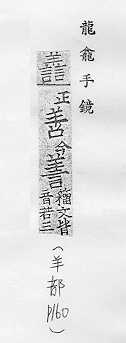 龍龕手鏡
譱正善今善籀文皆
音若三
(羊部 P160)